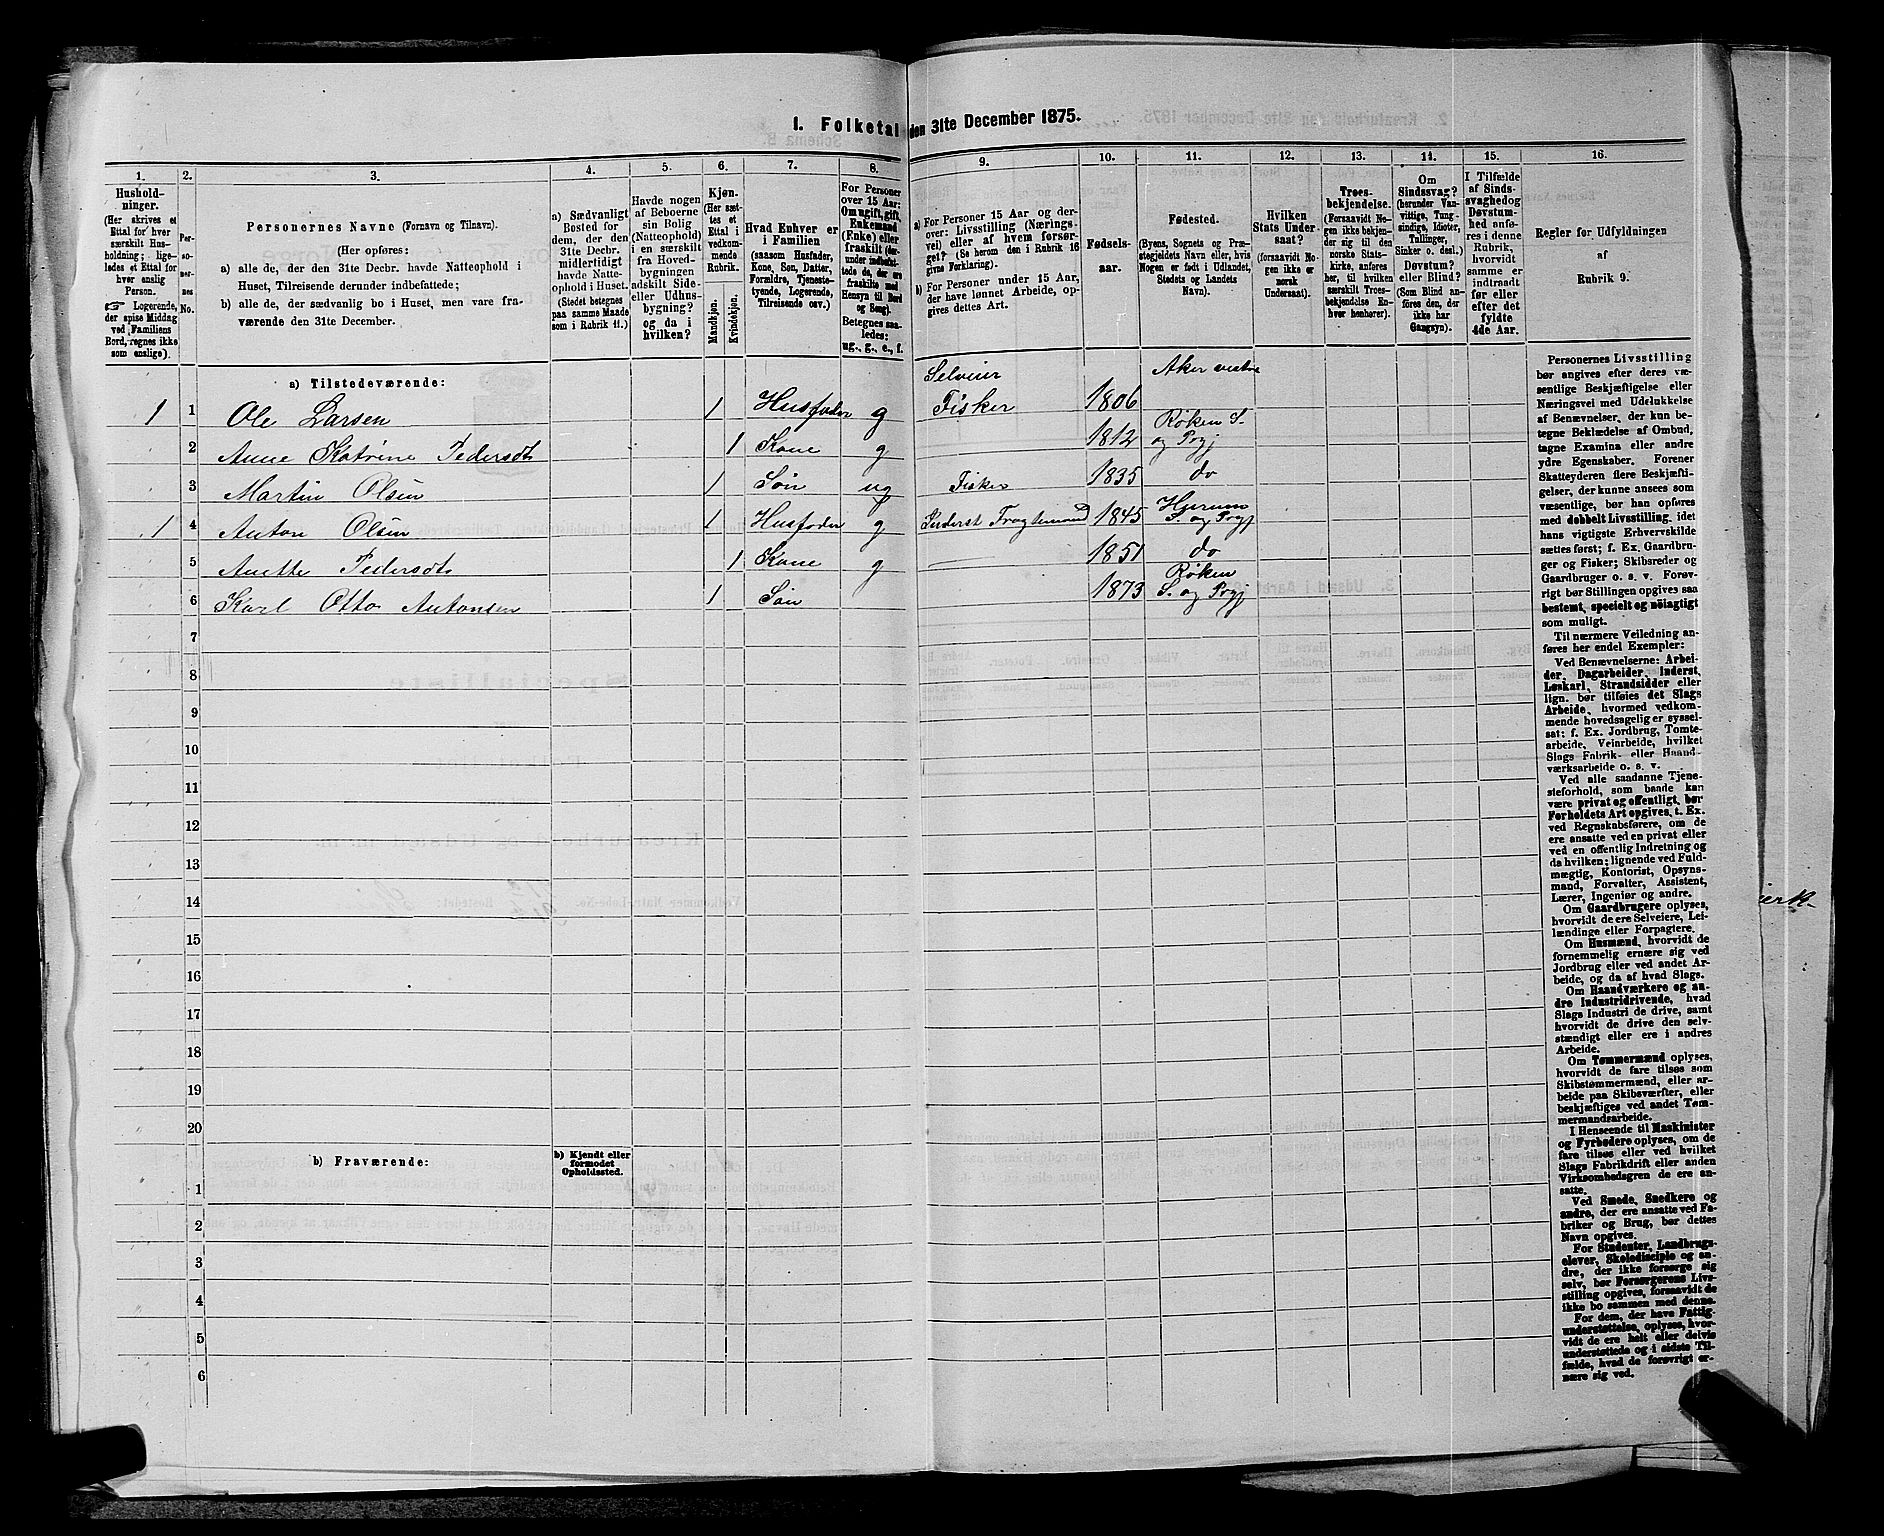 1. Folketal den 31te December 1875.
1. 2. 3. 4. 5. 6. 7. 8. 9. 10. 11. 12. 13. 14. 15. 16.
Hushold-
ninger.
(Her skrives et
Ettal for hver
særskilt Hus-
holdning; lige-
ledes et Ettal for
hver enslig
Person.
☞ Logerende,
der spise Middag
ved Familiens
Bord, regnes ikke
som enslige).
Per-
so-
ner-
nes
No.
Personernes Navne (Fornavn og Tilnavn).
(Her opføres:
a) alle de, der den 31te Decbr. havde Natteophold i
Huset, Tilreisende derunder indbefattede;
b) alle de, der sædvanlig bo i Huset, men vare fra-
værende den 31te December.
a) Sædvanligt
Bosted for
dem, der den
31te Decbr.
midlertidigt
havde Natte-
ophold i Huset.
(Stedet betegnes
paa samme Maade
som i Rubrik 11.)
Havde nogen
af Beboerne
sin Bolig
(Natteophold)
i en særskilt
fra Hoved-
bygningen
adskilt Side-
eller Udhus-
bygning?
og da i
hvilken?
Kjøn.
(Her sæt-
tes et
Ettal i
vedkom-
mende
Rubrik.
Mandkjøn.
Kvindekjøn.
Hvad Enhver er
i Familien
(saasom Husfader,
Kone, Søn, Datter,
Forældre, Tjeneste-
tyende, Logerende,
Tilreisende osv.)
For Personer
over 15 Aar:
Om ugift, gift,
Enkemand
(Enke) eller
fraskilt (der-
under indbefat-
tede de, der ere
fraskilte med
Hensyn til Bord
og Seng).
Betegnes saa-
ledes:
ug., g., e., f.
a) For Personer 15 Aar og der-
over: Livsstilling (Nærings-
vei) eller af hvem forsør-
get? (Se herom den i Rubrik 16
givne Forklaring).
b) For Personer under 15 Aar,
der have lønnet Arbeide, op-
gives dettes Art.
Fødsels-
aar.
Fødested.
(Byens, Sognets og Præ-
stegjeldets Navn eller, hvis
Nogen er født i Udlandet,
Stedets og Landets
Navn).
Hvilken
Stats Under-
saat?
(forsaavidt No-
gen ikke er
norsk
Undersaat).
Troes-
bekjendelse.
(Forsaavidt No-
gen ikke bekjen-
der sig til den
norske Stats-
kirke, anføres
her, til hvilken
særskilt Troes-
bekjendelse En-
hver henhører).
Om
Sindssvag?
(herunder Van-
vittige, Tung-
sindige, Idioter,
Tullinger,
Sinker o. desl.)
Døvstum?
eller Blind?
(Som Blind an-
føres den, der
ikke har
Gangsyn).
I Tilfælde
af Sinds-
svaghed og
Døvstum-
hed anfø-
res i denne
Rubrik,
hvorvidt
samme er
indtraadt
før eller
efter det
fyldte
4de Aar.
Regler for Udfyldningen
af
Rubrik 9.
a) Tilstedeværende:
1 1 Ole Larsen 1 Husfader g Selveier Fisker 1806 Aker vestre
2 Anne Katrine Pedersdt 1 Kone g 1812 Røken S. og Prgj
3 Martin Olsen 1 Søn ug Fisker 1835 do
1 4 Anton Olsen 1 Husfader g Inderst Fragtemand 1845 Hurum S. og Prgj
5 Anette Pedersdt 1 Kone g 1851 do
6 Karl Otto Antonsen 1 Søn 1873 Røken S. og Prgj
7
8
9
10
11
12
13
14
15
16
17
18
19
20
b) Fraværende:
b) Kjendt eller
formodet
Opholdssted.
1
2
3
4
5
6
Personernes Livsstilling
bør angives efter deres væ-
sentlige Beskjæftigelse eller
Næringsvei med Udelukkelse
af Benævnelser, der kun be-
tegne Beklædelse af Ombud,
tagne Examina eller andre
ydre Egenskaber. Forener
Skatteyderen flere Beskjæfti-
gelser, der kunne ansees som
væsentlige, bør han opføres
med dobbelt Livsstilling, idet
hans vigtigste Erhvervskilde
sættes først; f. Ex. Gaardbru-
ger og Fisker; Skibsreder og
Gaardbruger o. s. v. Forøv-
rigt bør Stillingen opgives saa
bestemt, specielt og nøiagtigt
som muligt.
Til nærmere Veiledning an-
føres her endel Exempler:
Ved Benævnelserne: Arbei-
der, Dagarbeider, Inderst,
Løskarl, Strandsidder eller
lign. bør tilføies det Slags
Arbeide, hvormed vedkom-
mende hovedsagelig er syssel-
sat; f. Ex. Jordbrug, Tomte-
arbeide, Veiarbeide, hvilket
Slags Fabrik- eller Haand-
værksarbeide o. s. v.
Ved alle saadanne Tjene-
steforhold, som baade kan
være privat og offentligt, bør
Forholdets Art opgives, t. Ex.
ved Regnskabsførere, om de
ere ansatte ved en privat eller
ved en offentlig Indretning og
da hvilken; lignende ved Fuld-
mægtig, Kontorist, Opsyns-
mand, Forvalter, Assistent,
Lærer, Ingeniør og andre.
Om Gaardbrugere oplyses,
hvorvidt de ere Selveiere, Lei-
lændinge eller Forpagtere.
Om Husmænd, hvorvidt de
fornemmelig ernære sig ved
Jordbrug eller ved andet Ar-
beide, og da af hvad Slags.
Om Haandværkere og an-
dre Industridrivende, hvad
Slags Industri de drive, samt
hvorvidt de drive den selv-
stændigt eller ere i andres
Arbeide.
Om Tømmermænd oplyses,
hvorvidt de fare tilsøs som
Skibstømmermænd, eller ar-
beide paa Skibsværfter, eller
beskjæftiges ved andet Tøm-
mermandsarbeide.
I Henseende til Maskinister
og Fyrbødere oplyses, om de
fare tilsøs eller ved hvilket
Slags Fabrikdrift eller anden
Virksomhedsgren de ere an-
satte.
Ved Smede, Snedkere og
andre, der ere ansatte ved Fa-
briker og Brug, bør dettes
Navn opgives.
For Studenter, Landbrugs-
elever, Skoledisciple og an-
dre, der ikke forsørge sig
selv, bør Forsørgerens Livs-
stilling opgives, forsaavidt de
ikke bo sammen med denne.
For dem, der have Fattig-
understøttelse, oplyses, hvor-
vidt de ere helt eller delvis
understøttede og i sidste Til-
fælde, hvad de forøvrigt er-
nære sig ved.